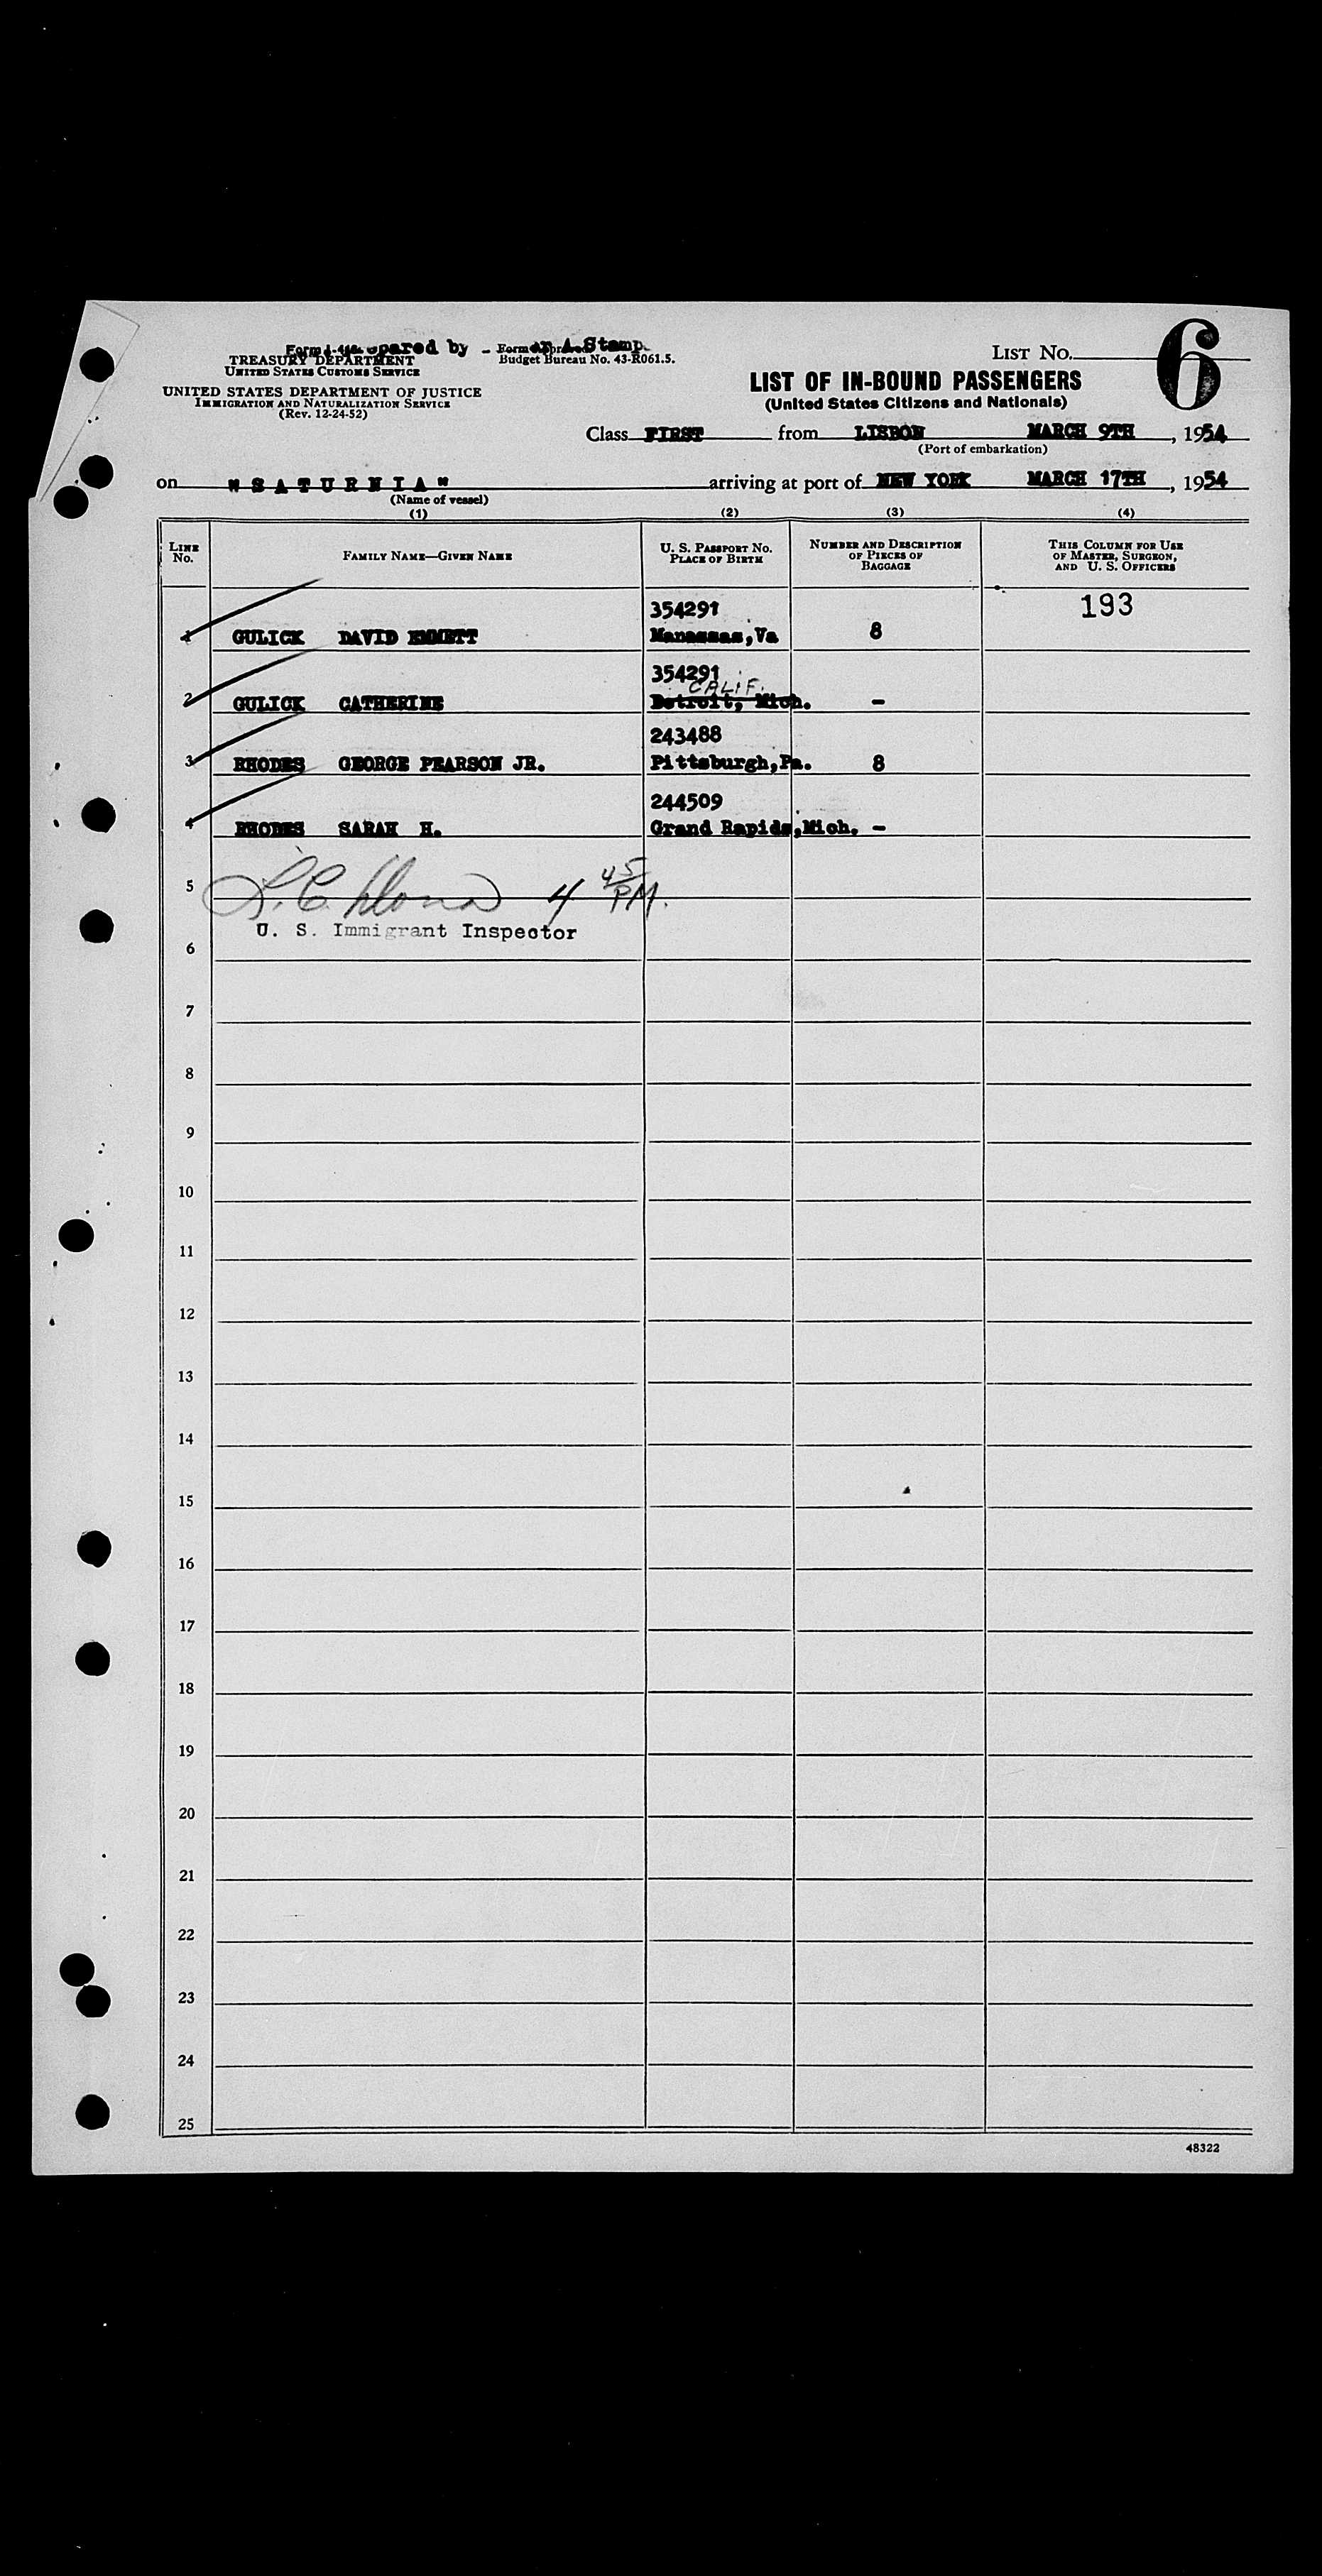 Form I-416 pared by - Form or A. Stamp.
TREASURY DEPARTMENT
UNITED STATES CUSTOMS SERVICE
Budget Bureau No. 43-R061.5.
UNITED STATES DEPARTMENT OF JUSTICE
IMMIGRATION AND NATURALIZATION SERVICE
(Rev. 12-24-52)
LIST NO. 6
LIST OF IN-BOUND PASSENGERS
(United States Citizens and Nationals)
Class FIRST from LISBON MARCH 9TH, 1954
(Port of embarkation)
on "SATURNIA" arriving at port of NEW YORK MARCH 17TH, 1954
(Name of vessel)
(1) (2) (3) (4)
LINE No. FAMILY NAME—GIVEN NAME U. S. PASSPORT NO. PLACE OF BIRTH NUMBER AND DESCRIPTION OF PIECES OF BAGGAGE THIS COLUMN FOR USE OF MASTER, SURGEON, AND U. S. OFFICERS
354291 193
1 GULICK DAVID EMMETT Manassas,Va 8
354291
CALIF.
2 GULICK CATHERINE Detroit, Mich. -
243488
3 RHODES GEORGE PEARSON JR. Pittsburgh,Pa. 8
244509
4 RHODES SARAH H. Grand Rapids,Mich. -
5 4 45 PM.
U. S. Immigrant Inspector
6
7
8
9
10
11
12
13
14
15
16
17
18
19
20
21
22
23
24
25
48322